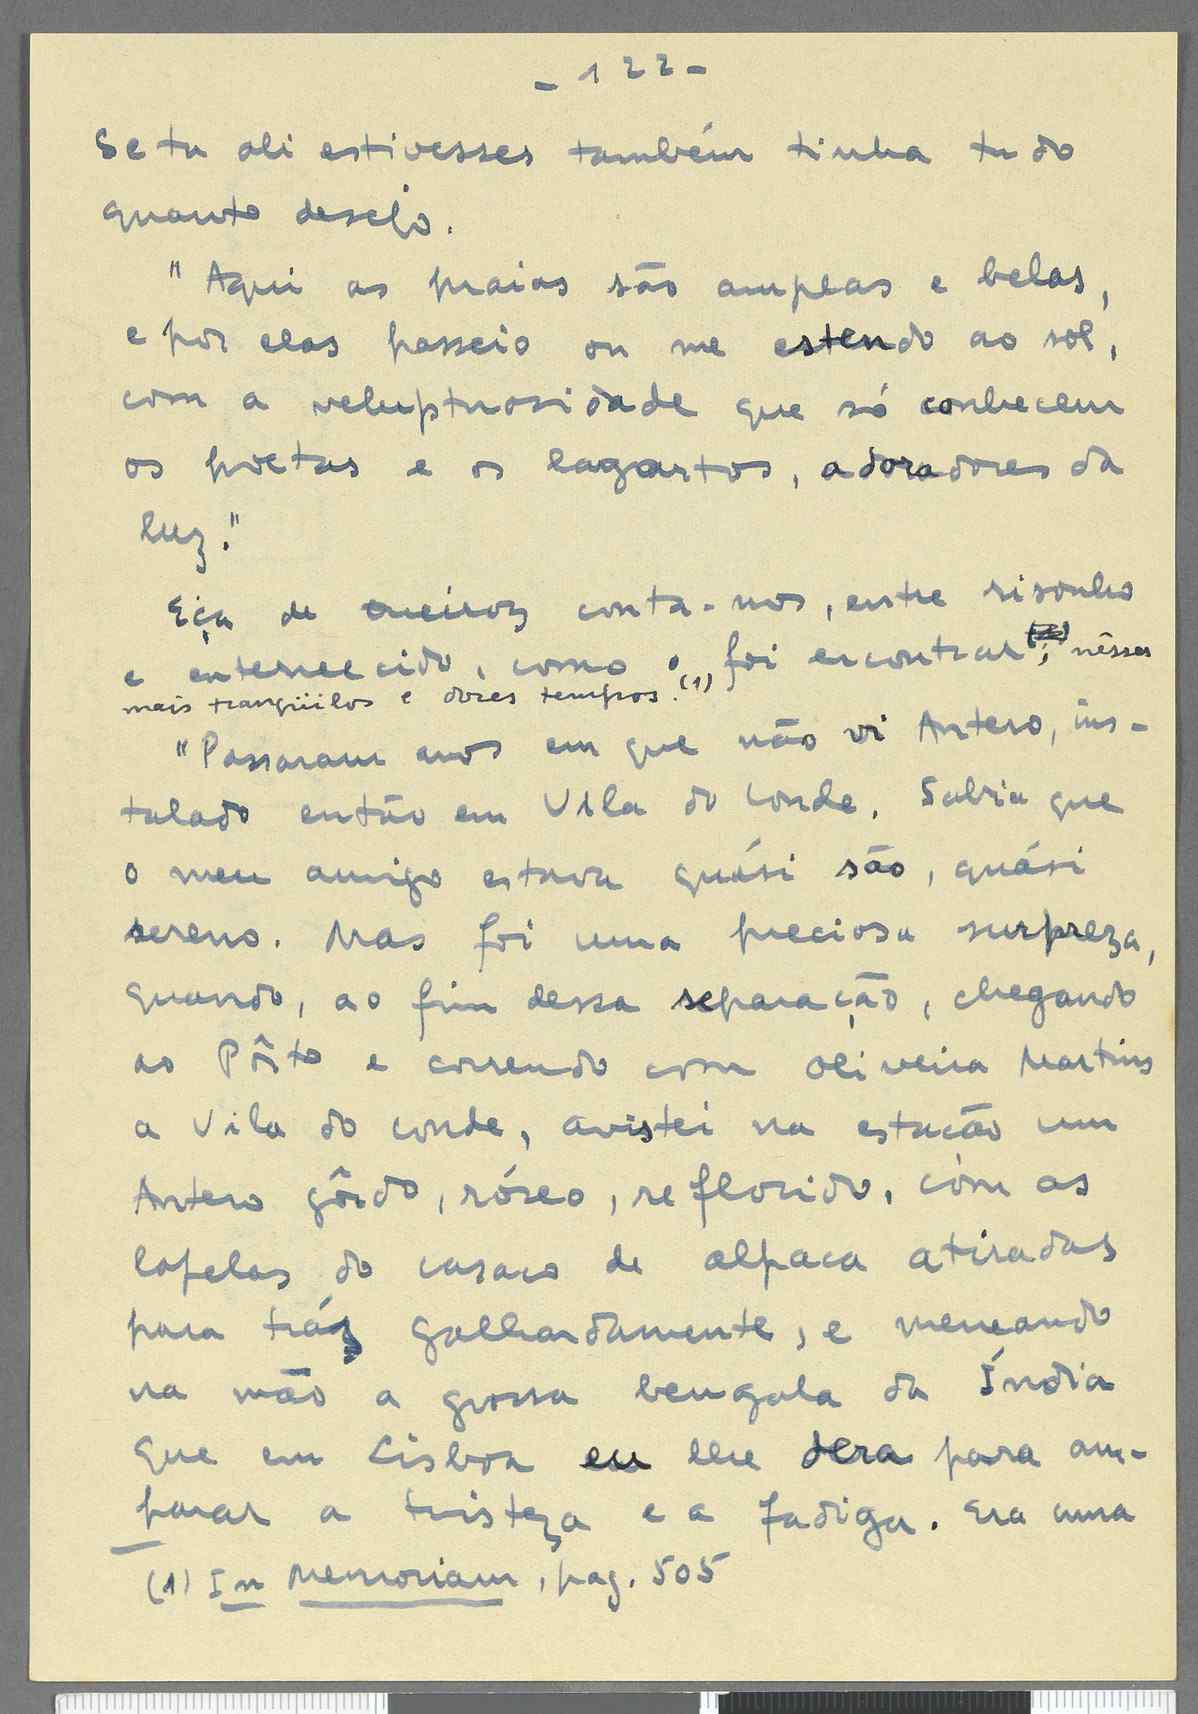 - 122 -
Se tu ali estivesses também tinha tudo
quanto desejo.
"Aqui as praias são amplas e belas,
e por elas passeio ou me estendo ao sol,
com a veluptuosidade que só conhecem
os poetas e os lagartos, adoradores da
luz."
Eça de Queiroz conta-nos, entre risonho
e enternecido, como o foi encontrar, nêsses
mais tranqüilos e doces tempos.(1)
"Passaram anos em que não vi Antero, ins-
talado então em Vila do Conde. Sabia que
o meu amigo estava quási são, quási
sereno. Mas foi uma preciosa surpreza,
quando, ao fim dessa separação, chegando
ao Pôrto e correndo com Oliveira Martins
a Vila do Conde, avistei na estação um
Antero gôrdo, róseo, reflorido, com as
lapelas do casaco de alpaca atiradas
para tráz galhardamente, e meneando
na mão a grossa bengala da Índia
que em Lisboa eu lhe dera para am-
parar a tristeza e a fadiga. Era uma
(1) In Memoriam, pag. 505